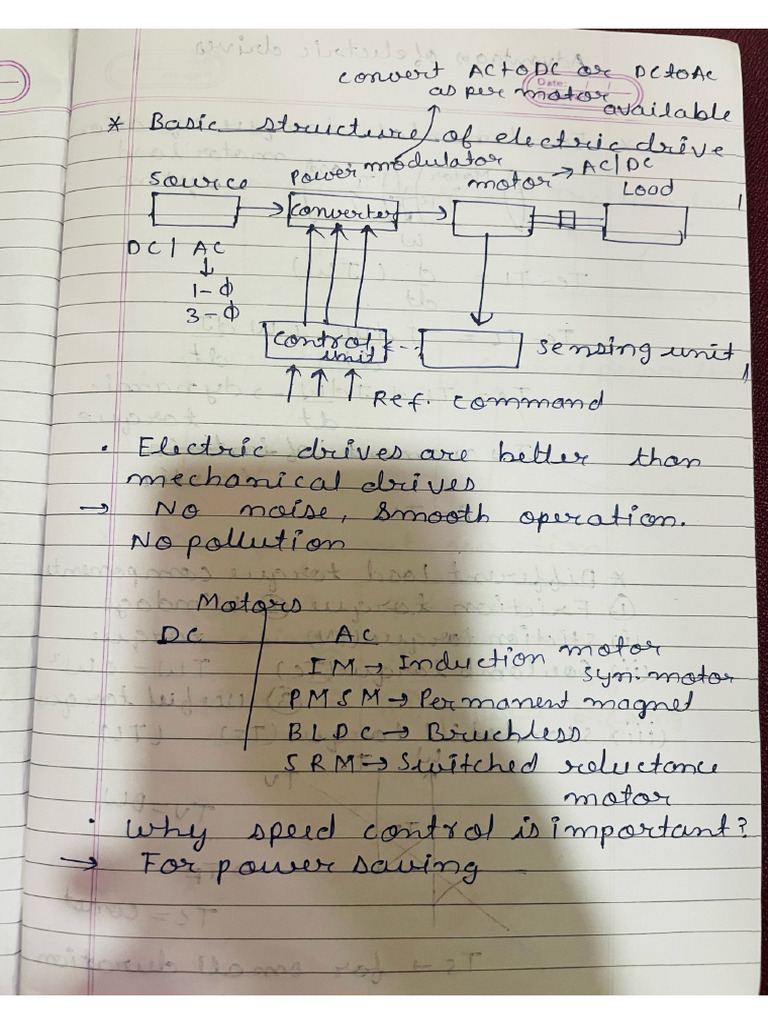 convert AC to DC or DC to AC
Date:
as per motor
available
* Basic structure of electric drive
power modulator
motor → AC/DC
source
Load
converter
DC | AC
↓
1-Φ
3-Φ
control
unit
sensing unit
Ref. command
. Electric drives are better than
mechanical drives
→ No noise, smooth operation.
No pollution
Motors
DC AC
IM → Induction motor
syn. motor
PMSM → Permanent magnet
BLDC → Bruchless
SRM → Switched reluctance
motor
. Why speed control is important?
→ For power saving